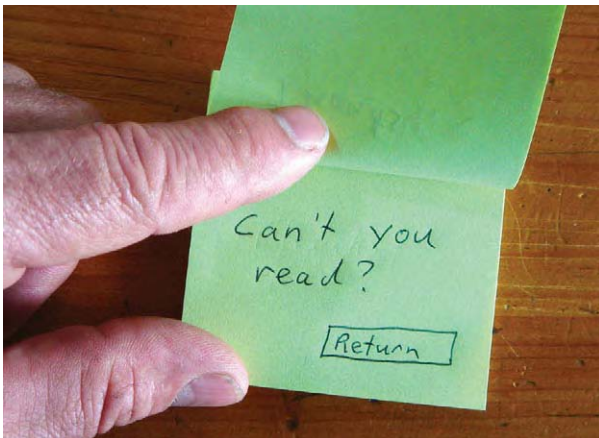 Can't you
read?
Return